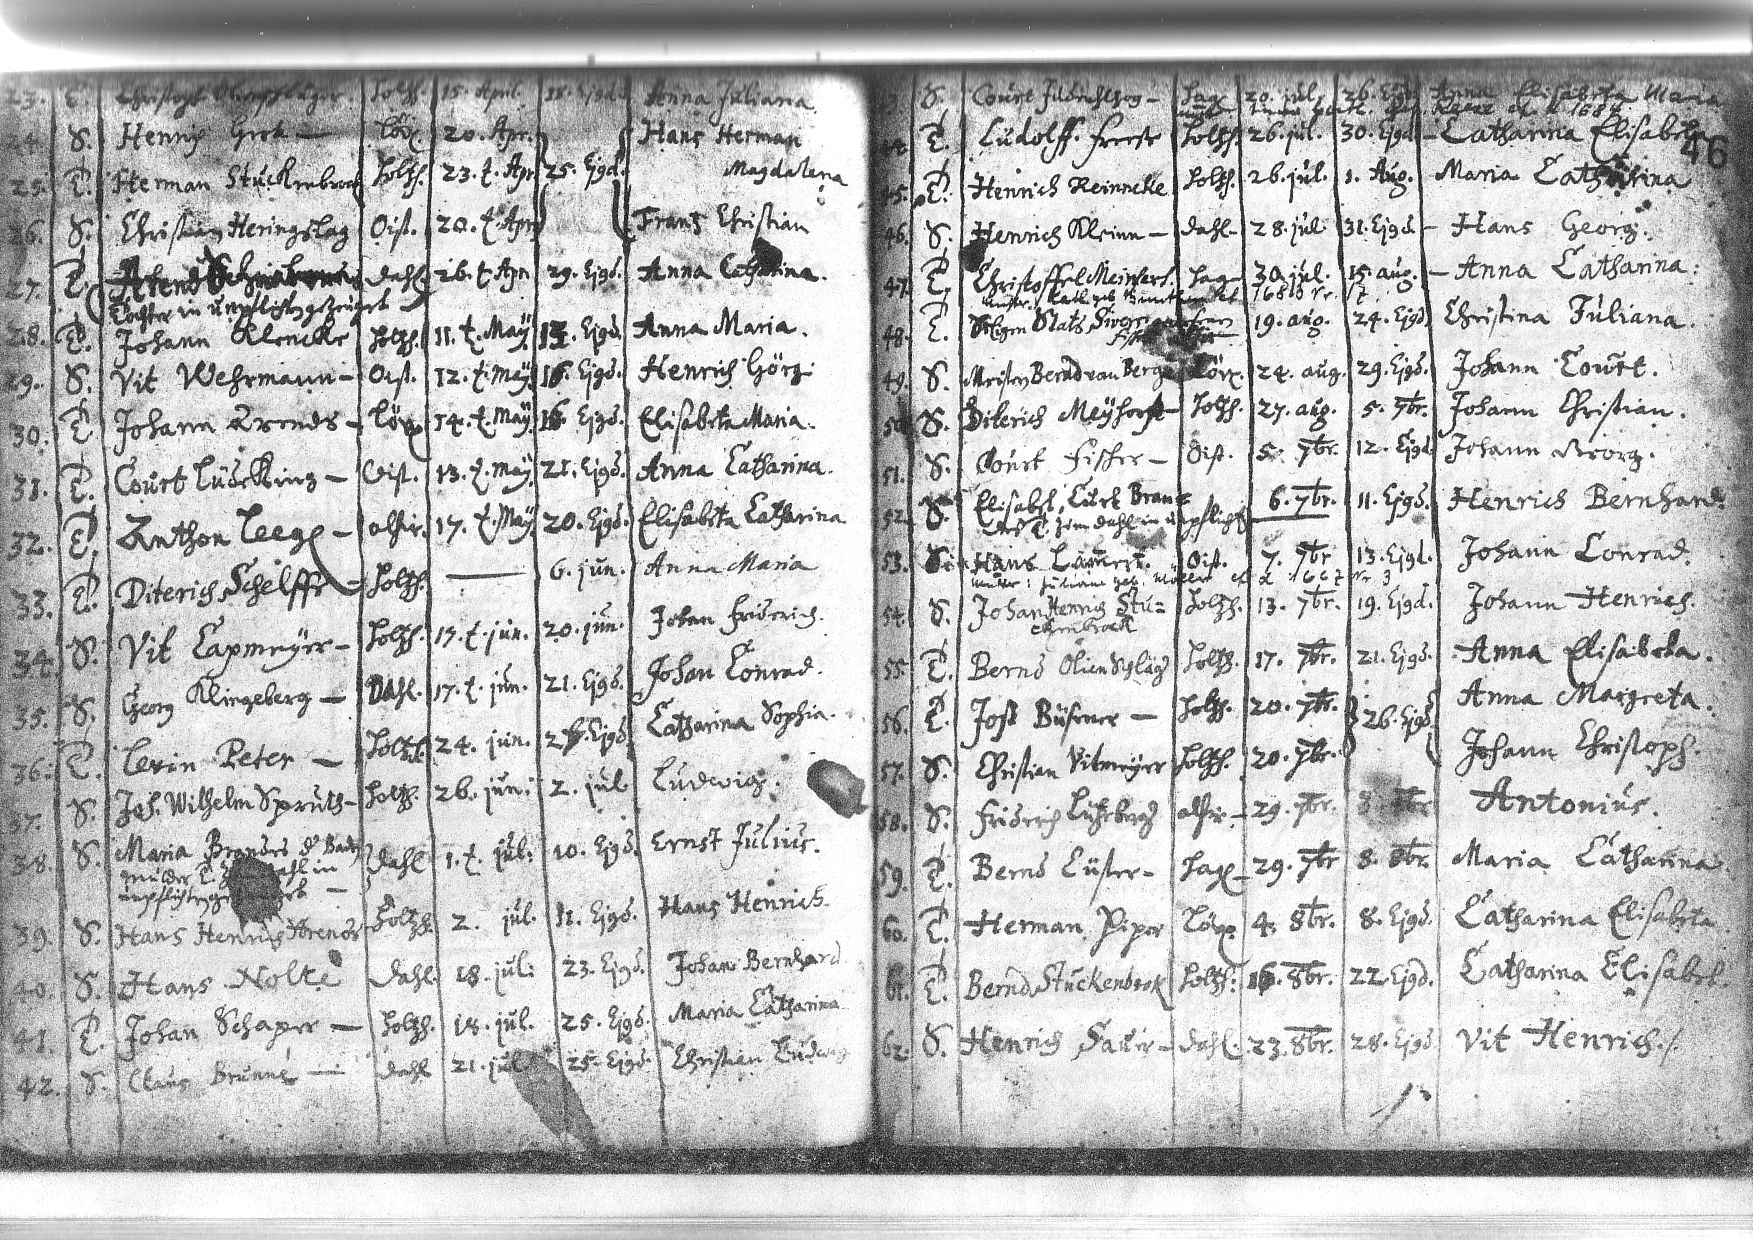 23. T. Christoph Holtzh. 15. April. 18. Ejgd. Anna Juliana
24. S. Henrig Grote — Löx. 20. Apr. Hans Herman
25. T. Herman Stuckenbrock Holtzh. 23. t. Apr. 25. Ejgd. Magdalena
26. S. Christian Heringslag Oist. 20. t. Apr. Frans Christian
27. T. Arend Dahl. 26. t. Apr. 29. Ejgd. Anna Catharina.
Tochter in unpflicht gezeuget
28. T. Johann Klencke Holtzh. 11. t. May. 17. Ejgd. Anna Maria.
29. S. Vit Wehrmann — Oist. 12. t. May. 16. Ejgd. Henrich Görg
30. T. Johann Arends — Löx. 14. t. May. 16. Ejgd. Elisabeta Maria.
31. T. Court Lüdeking — Oist. 13. t. May. 21. Ejgd. Anna Catharina.
32. T. Anthon Teege — 17. t. May. 20. Ejgd. Elisabeta Catharina
33. T. Diterich Schelffe — Holtzh. — 6. jun. Anna Maria
34. S. Vit Capmeyer — Holtzh. 15. t. jun. 20. jun. Johan Friderich.
35. S. Georg Klingeberg — Dahl. 17. t. jun. 21. Ejgd. Johan Conrad.
36. T. Levin Peter — Holtzh. 24. jun. Ejgd. Catharina Sophia.
37. S. Joh. Wilhelm Spruth — Holtzh. 26. jun. 2. jul. Ludwig.
38. S. Maria Brandes Dahl 1. t. jul. 10. Ejgd. Ernst Julius.
39. S. Hans Henrig Arends Holtzh. 2. jul. 11. Ejgd. Hans Henrich
40. S. Hans Nolte Dahl. 18. jul. 23. Ejgd. Johan Bernhard
41. T. Johan Schaper — Holtzh. 18. jul. 25. Ejgd. Maria Catharina
42. S. Claus Brunne — Dahl 21. jul. 25. Ejgd. Christian Ludwig
46
S. Court — Hag. 20. jul. 26. Ejgd. Anna Elisabeta Maria
T. Ludolff Freese Holtzh. 26. jul. 30. Ejgd. — Catharina Elisabeta
45. T. Henrich Reinneke Holtzh. 26. jul. 1. Aug. Maria Catharina
46. S. Henrich Kleinn — Dahl 28. jul. 31. Ejgd. — Hans Georg.
47. T. Christoffel Meiners. Hag — 30. jul. 15. aug. — Anna Catharina.
48. T. Seligen Stats 19. aug. 24. Ejgd. Christina Juliana.
49. S. Meister Bernd van Berge Löx. 24. aug. 29. Ejgd. Johann Court.
50. S. Diterich Meyhorst — Holtzh. 27. aug. 5. 7br. Johann Christian.
51. S. Court Fischer — Oist. 5. 7br. 12. Ejgd. Johann Georg.
52. S. Elisabet, Curt 6. 7br. 11. Ejgd. Henrich Bernhard.
53. S. Hans Lauert. Oist. 7. 7br. 13. Ejgd. Johann Conrad.
54. S. Johan Henrig Stu= Holtzh. 13. 7br. 19. Ejgd. Johann Henrich.
ckenbrock
55. T. Bernd Holtzh. 17. 7br. 21. Ejgd. Anna Elisabeta.
56. T. Jost Büsener — Holtzh. 20. 7br. 26. Ejgd. Anna Margreta.
57. S. Christian Vitmeyer Holtzh. 20. 7br. Johann Christoph.
58. S. Friderich 29. 7br. Antonius.
59. T. Bernd Cüster — Hag — 29. 7br. 8. 8br. Maria Catharina.
60. T. Herman Piper Löx. 4. 8br. 8. Ejgd. Catharina Elisabeta
61. T. Bernd Stuckenbrok Holtzh. 16. 8br. 22. Ejgd. Catharina Elisabet.
62. S. Henrich Sauer — Dahl. 23. 8br. 28. Ejgd. Vit Henrich.